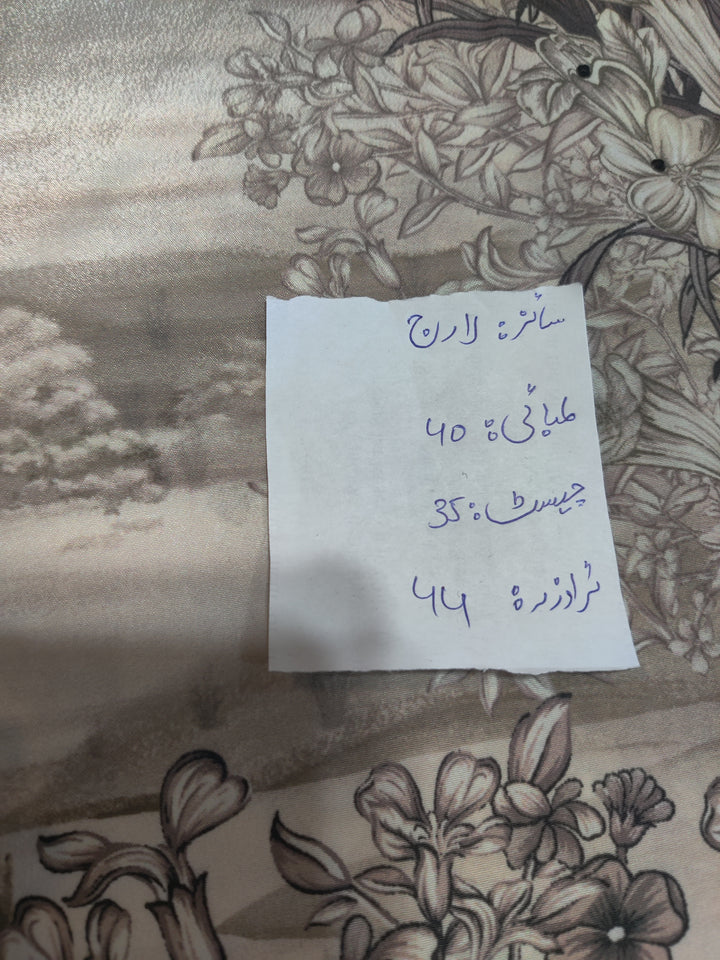 سائز: لارج
لمبائی: 40
چیسٹ: 35
ٹراوزر: 44